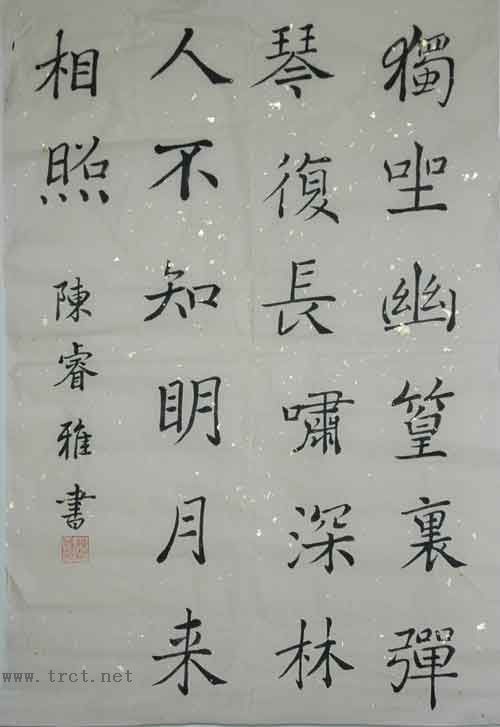 獨坐幽篁裏彈
琴復長嘯深林
人不知明月来
相照
陳睿雅書
www.trct.net